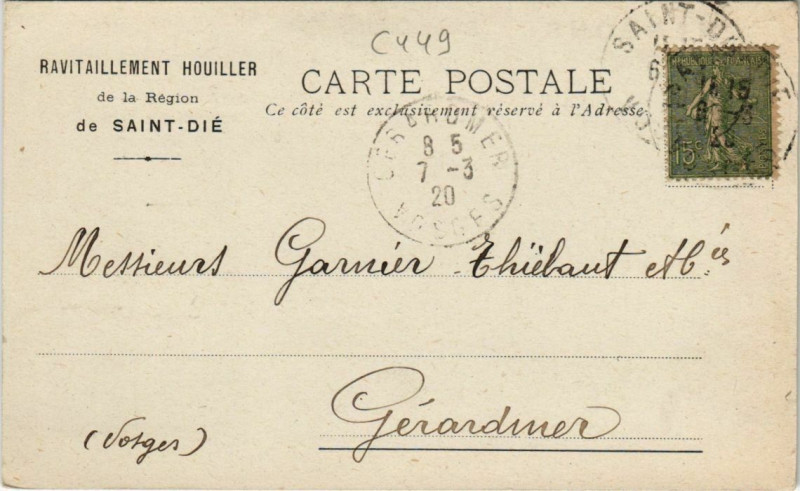 C449
RAVITAILLEMENT HOUILLER
de la Région
de SAINT-DIÉ
CARTE POSTALE
Ce côté est exclusivement réservé à l'Adresse
SAINT-DIÉ
REPUBLIQUE FRANÇAISE
15c
GÉRARDMER
8 5
7 -3
20
VOSGES
Messieurs Garnier Thiébaut &
Gérardmer
(Vosges)